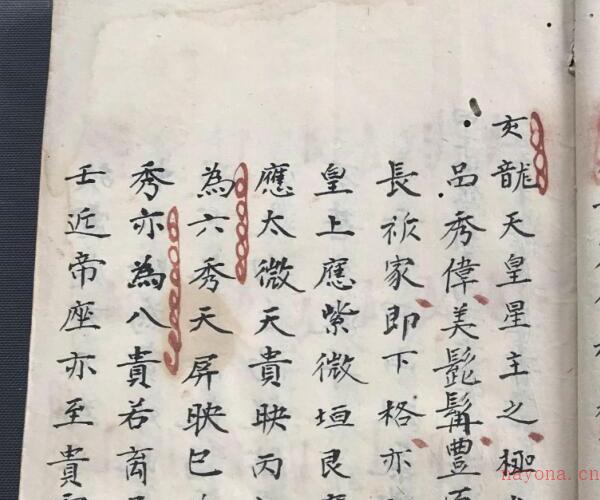 亥龍天皇星主之極
品秀偉美髭髯豊
長祈家即下格亦
皇上應紫微垣艮
應太微天貴映丙
為六秀天屏映巳
秀亦為八貴若离
壬近帝座亦至貴
nayona.cn